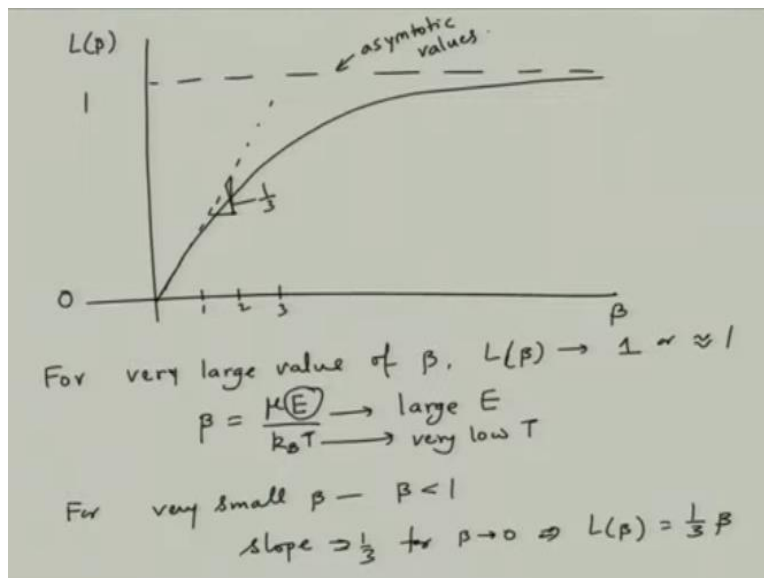 L(β)
asymtotic
values.
1
1/3
0
1 2 3
β
For very large value of β, L(β) → 1 or ≈ 1
β = μE/k_BT
→ large E
→ very low T
For very small β — β < 1
slope ⇒ 1/3 for β→0 ⇒ L(β) = 1/3 β